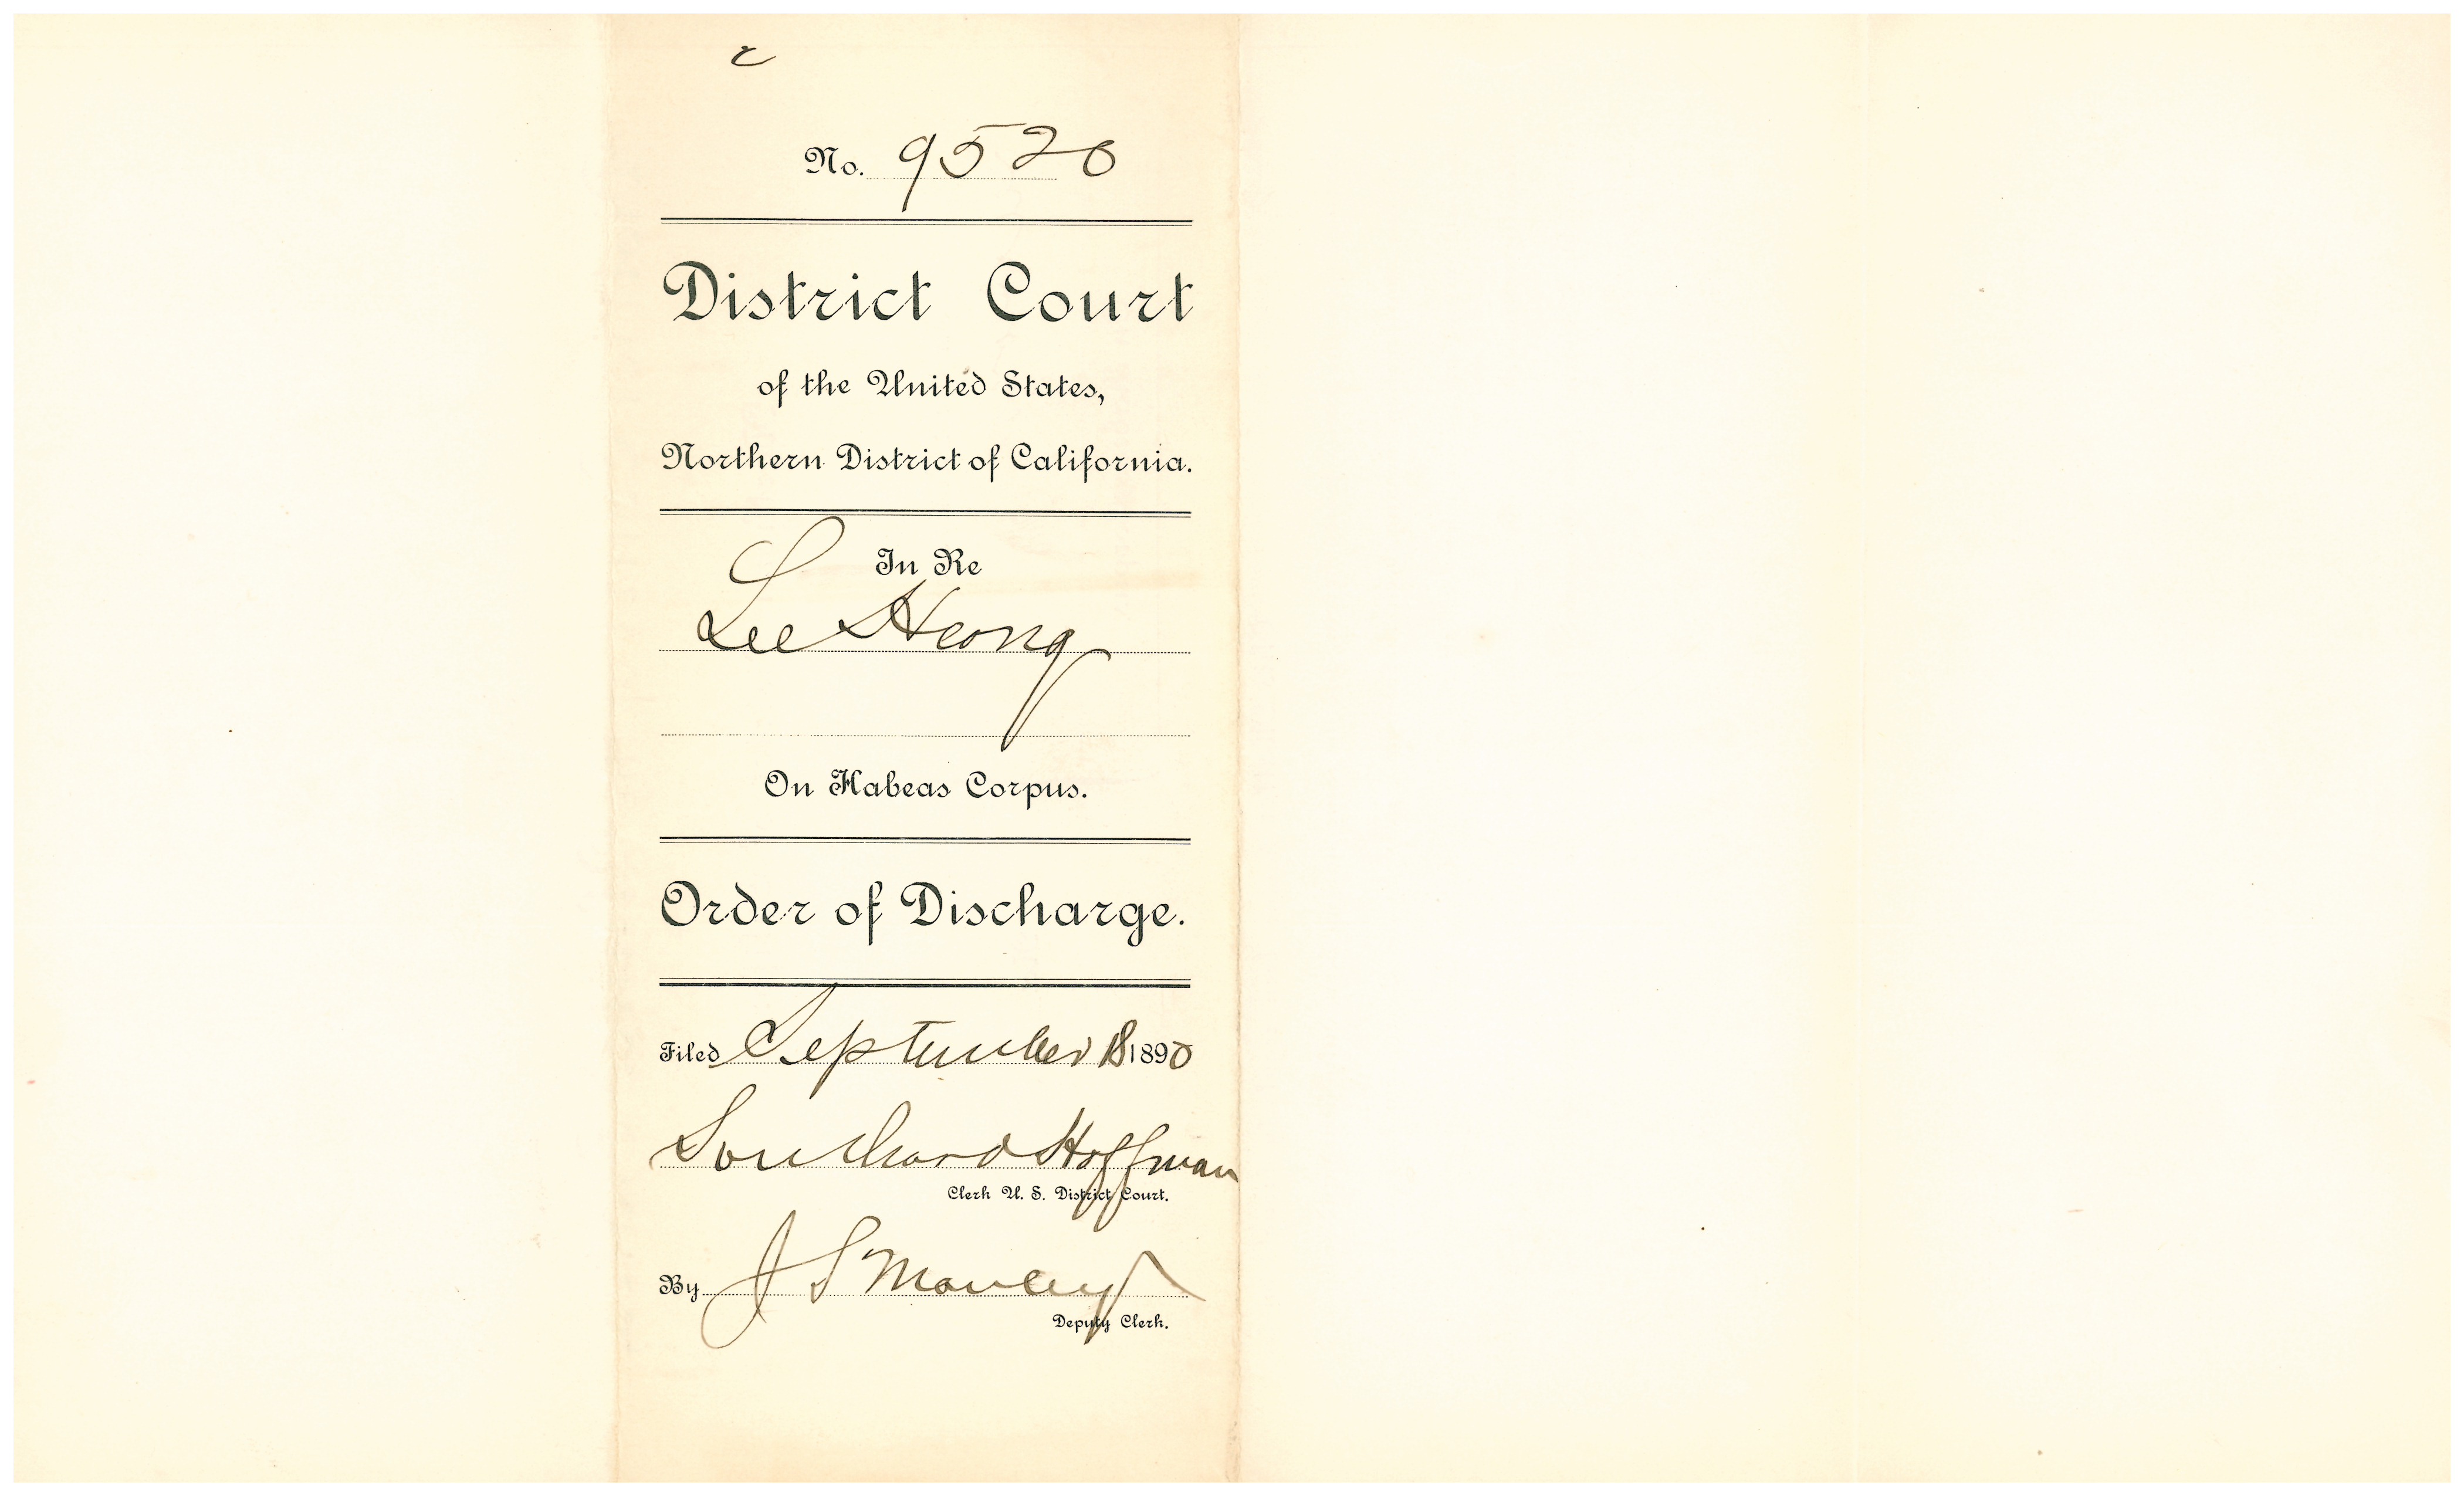 No. 9520
District Court
of the United States,
Northern District of California.
In Re
Lee Heong
On Habeas Corpus.
Order of Discharge.
Filed September 18 1890
Southard Hoffman
Clerk U. S. District Court.
By J S Manley
Deputy Clerk.